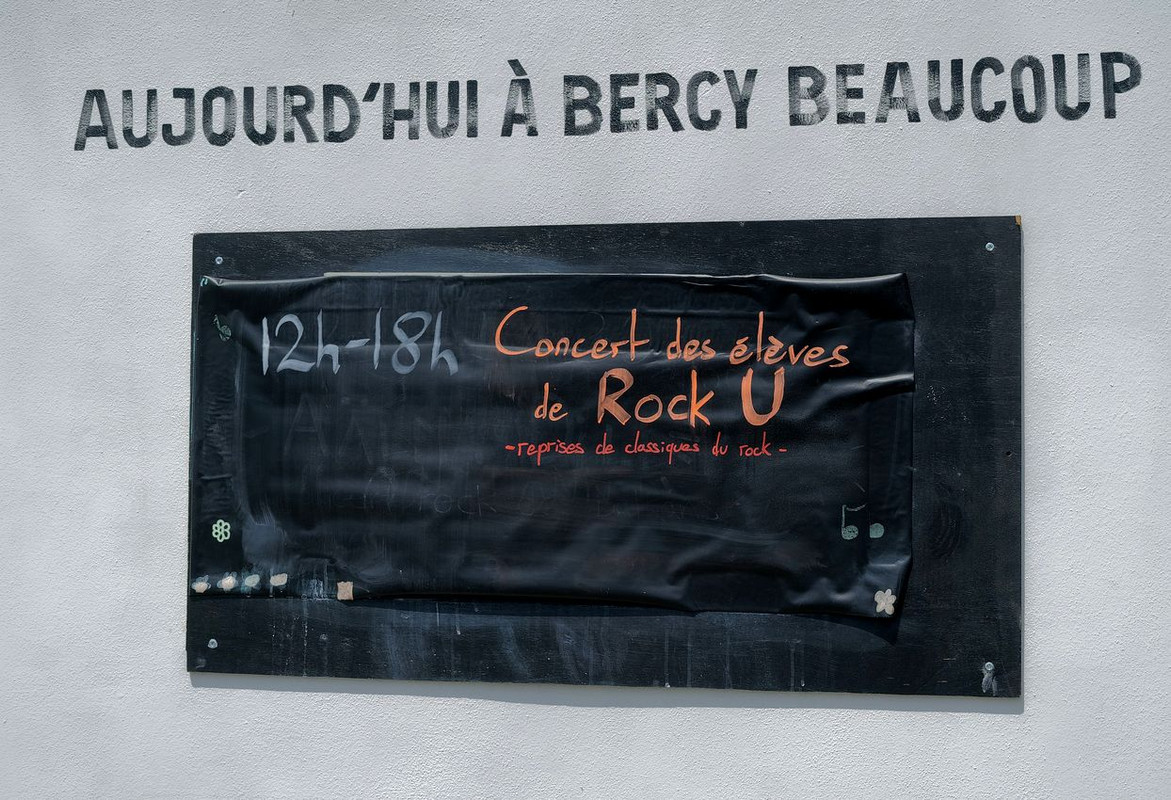 AUJOURD'HUI À BERCY BEAUCOUP
12h-18h Concert des élèves
de Rock U
-reprises de classiques du rock-
rock